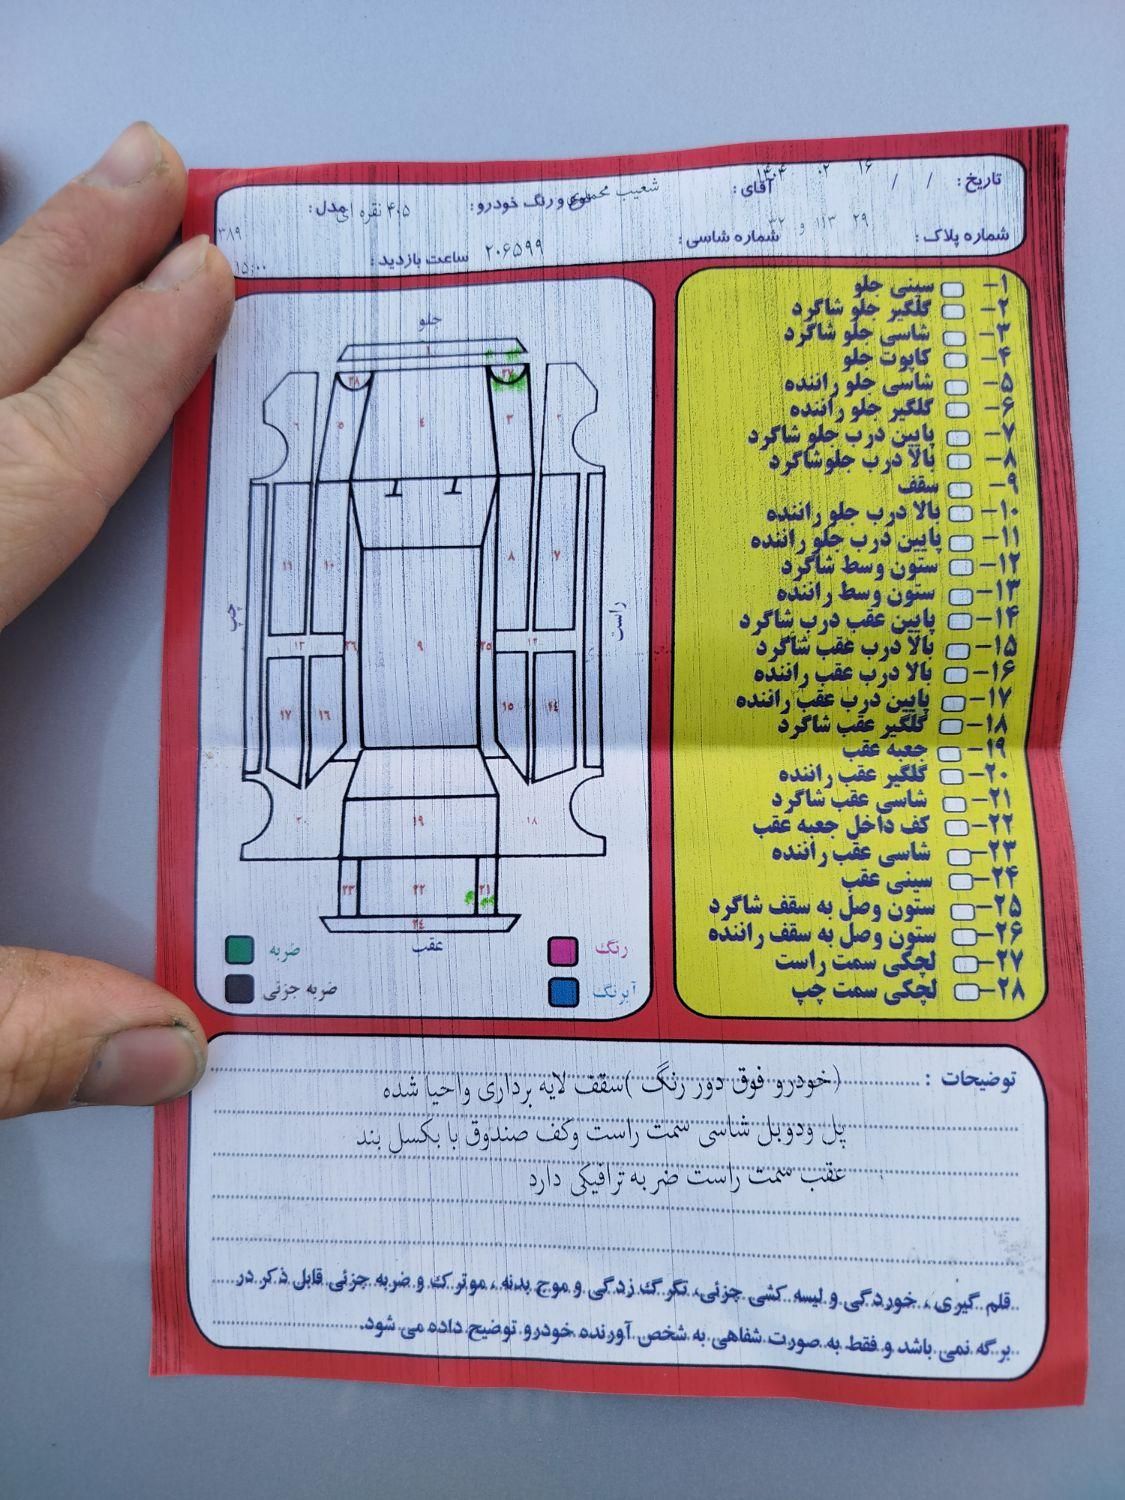 تاریخ : / / ۱۶ ۰۲ ۱۴۰۴ آقای : شعیب نوع و رنگ خودرو : ۴۰۵ نقره ای مدل :
شماره پلاک : ۲۹ ۱۱۳ و ۳۲ شماره شاسی : ۲۰۶۵۹۹ ساعت بازدید : ۱۵:۰۰ ۳۸۹
۱- سینی جلو
۲- گلگیر جلو شاگرد
۳- شاسی جلو شاگرد
۴- کاپوت جلو
۵- شاسی جلو راننده
۶- گلگیر جلو راننده
۷- پایین درب جلو شاگرد
۸- بالا درب جلوشاگرد
۹- سقف
۱۰- بالا درب جلو راننده
۱۱- پایین درب جلو راننده
۱۲- ستون وسط شاگرد
۱۳- ستون وسط راننده
۱۴- پایین عقب درب شاگرد
۱۵- بالا درب عقب شاگرد
۱۶- بالا درب عقب راننده
۱۷- پایین درب عقب راننده
۱۸- گلگیر عقب شاگرد
۱۹- جعبه عقب
۲۰- گلگیر عقب راننده
۲۱- شاسی عقب شاگرد
۲۲- کف داخل جعبه عقب
۲۳- شاسی عقب راننده
۲۴- سینی عقب
۲۵- ستون وصل به سقف شاگرد
۲۶- ستون وصل به سقف راننده
۲۷- لچکی سمت راست
۲۸- لچکی سمت چپ
جلو
۱
۲۷ ۲۸
۲ ۳ ۴ ۵ ۶
۷ ۸ ۱۰ ۱۱
راست چپ
۱۲ ۲۵ ۹ ۲۶ ۱۳
۱۴ ۱۵ ۱۶ ۱۷
۱۸ ۱۹ ۲۰
۲۱ ۲۲ ۲۳
۲۴
عقب
رنگ ضربه
آبرنگ ضربه جزئی
توضیحات : (خودرو فوق دور رنگ )سقف لایه برداری واحیا شده
پل ودوبل شاسی سمت راست وکف صندوق با بکسل بند
عقب سمت راست ضربه ترافیکی دارد
قلم گیری ، خوردگی و لیسه کشی جزئی، تگرگ زدگی و موج بدنه ، موتر ک و ضربه جزئی قابل ذکر در
برگه نمی باشد و فقط به صورت شفاهی به شخص آورنده خودرو توضیح داده می شود.